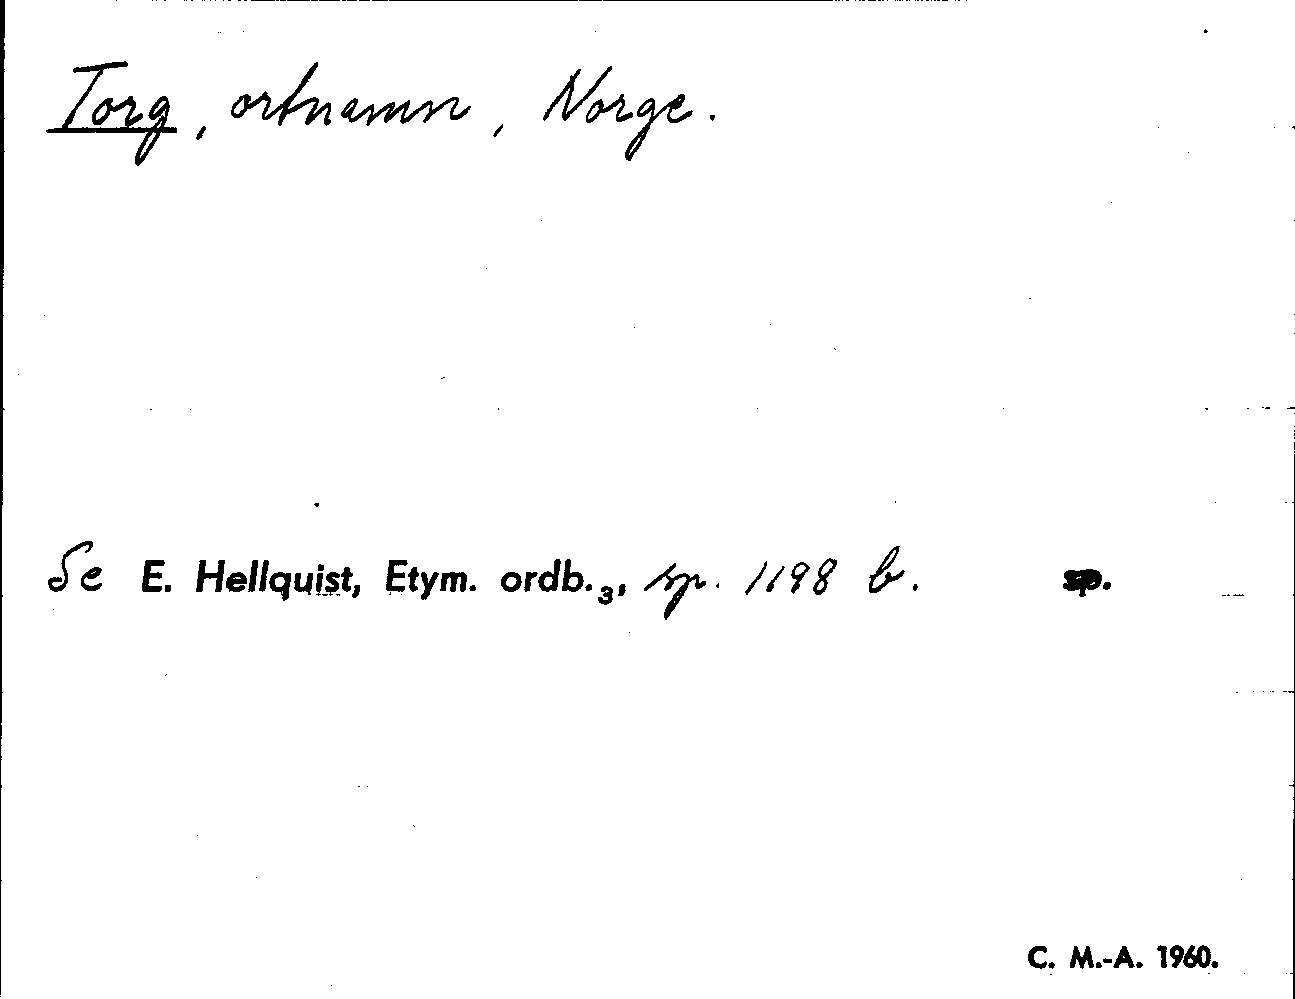 Torg, ortnamn, Norge.
Se E. Hellquist, Etym. ordb.₃, sp. 1198 b. sp.
C. M.-A. 1960.